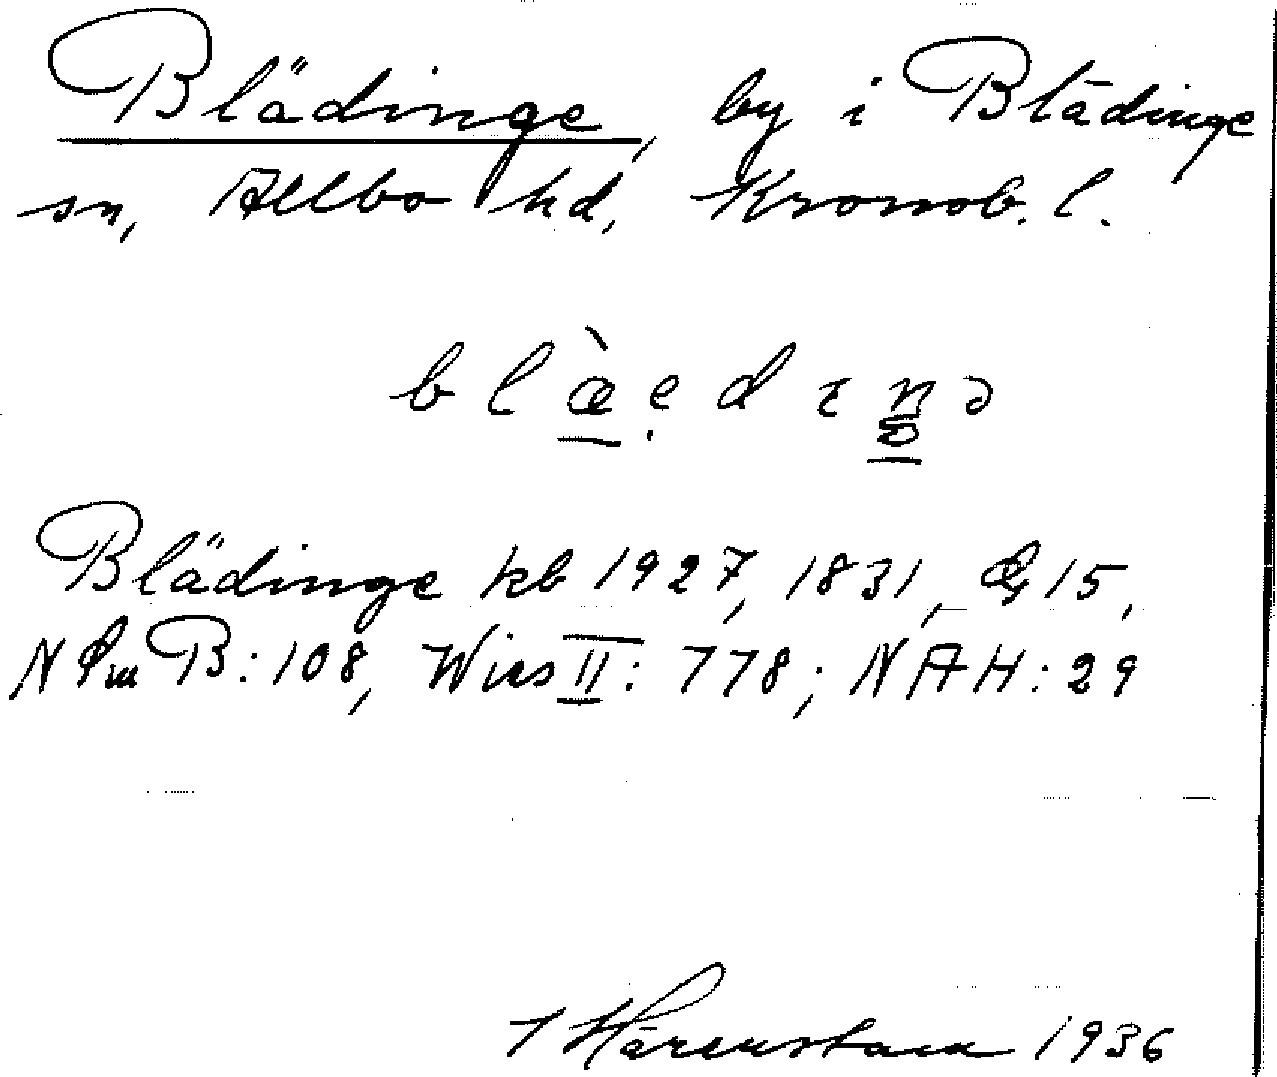 Blädinge, by i Blädinge
sn, Allbo hd, Kronob. l.
Blädinge kb 1927, 1831, G 15,
B:108, Wies II: 778; NAH: 29
Härenstam 1936